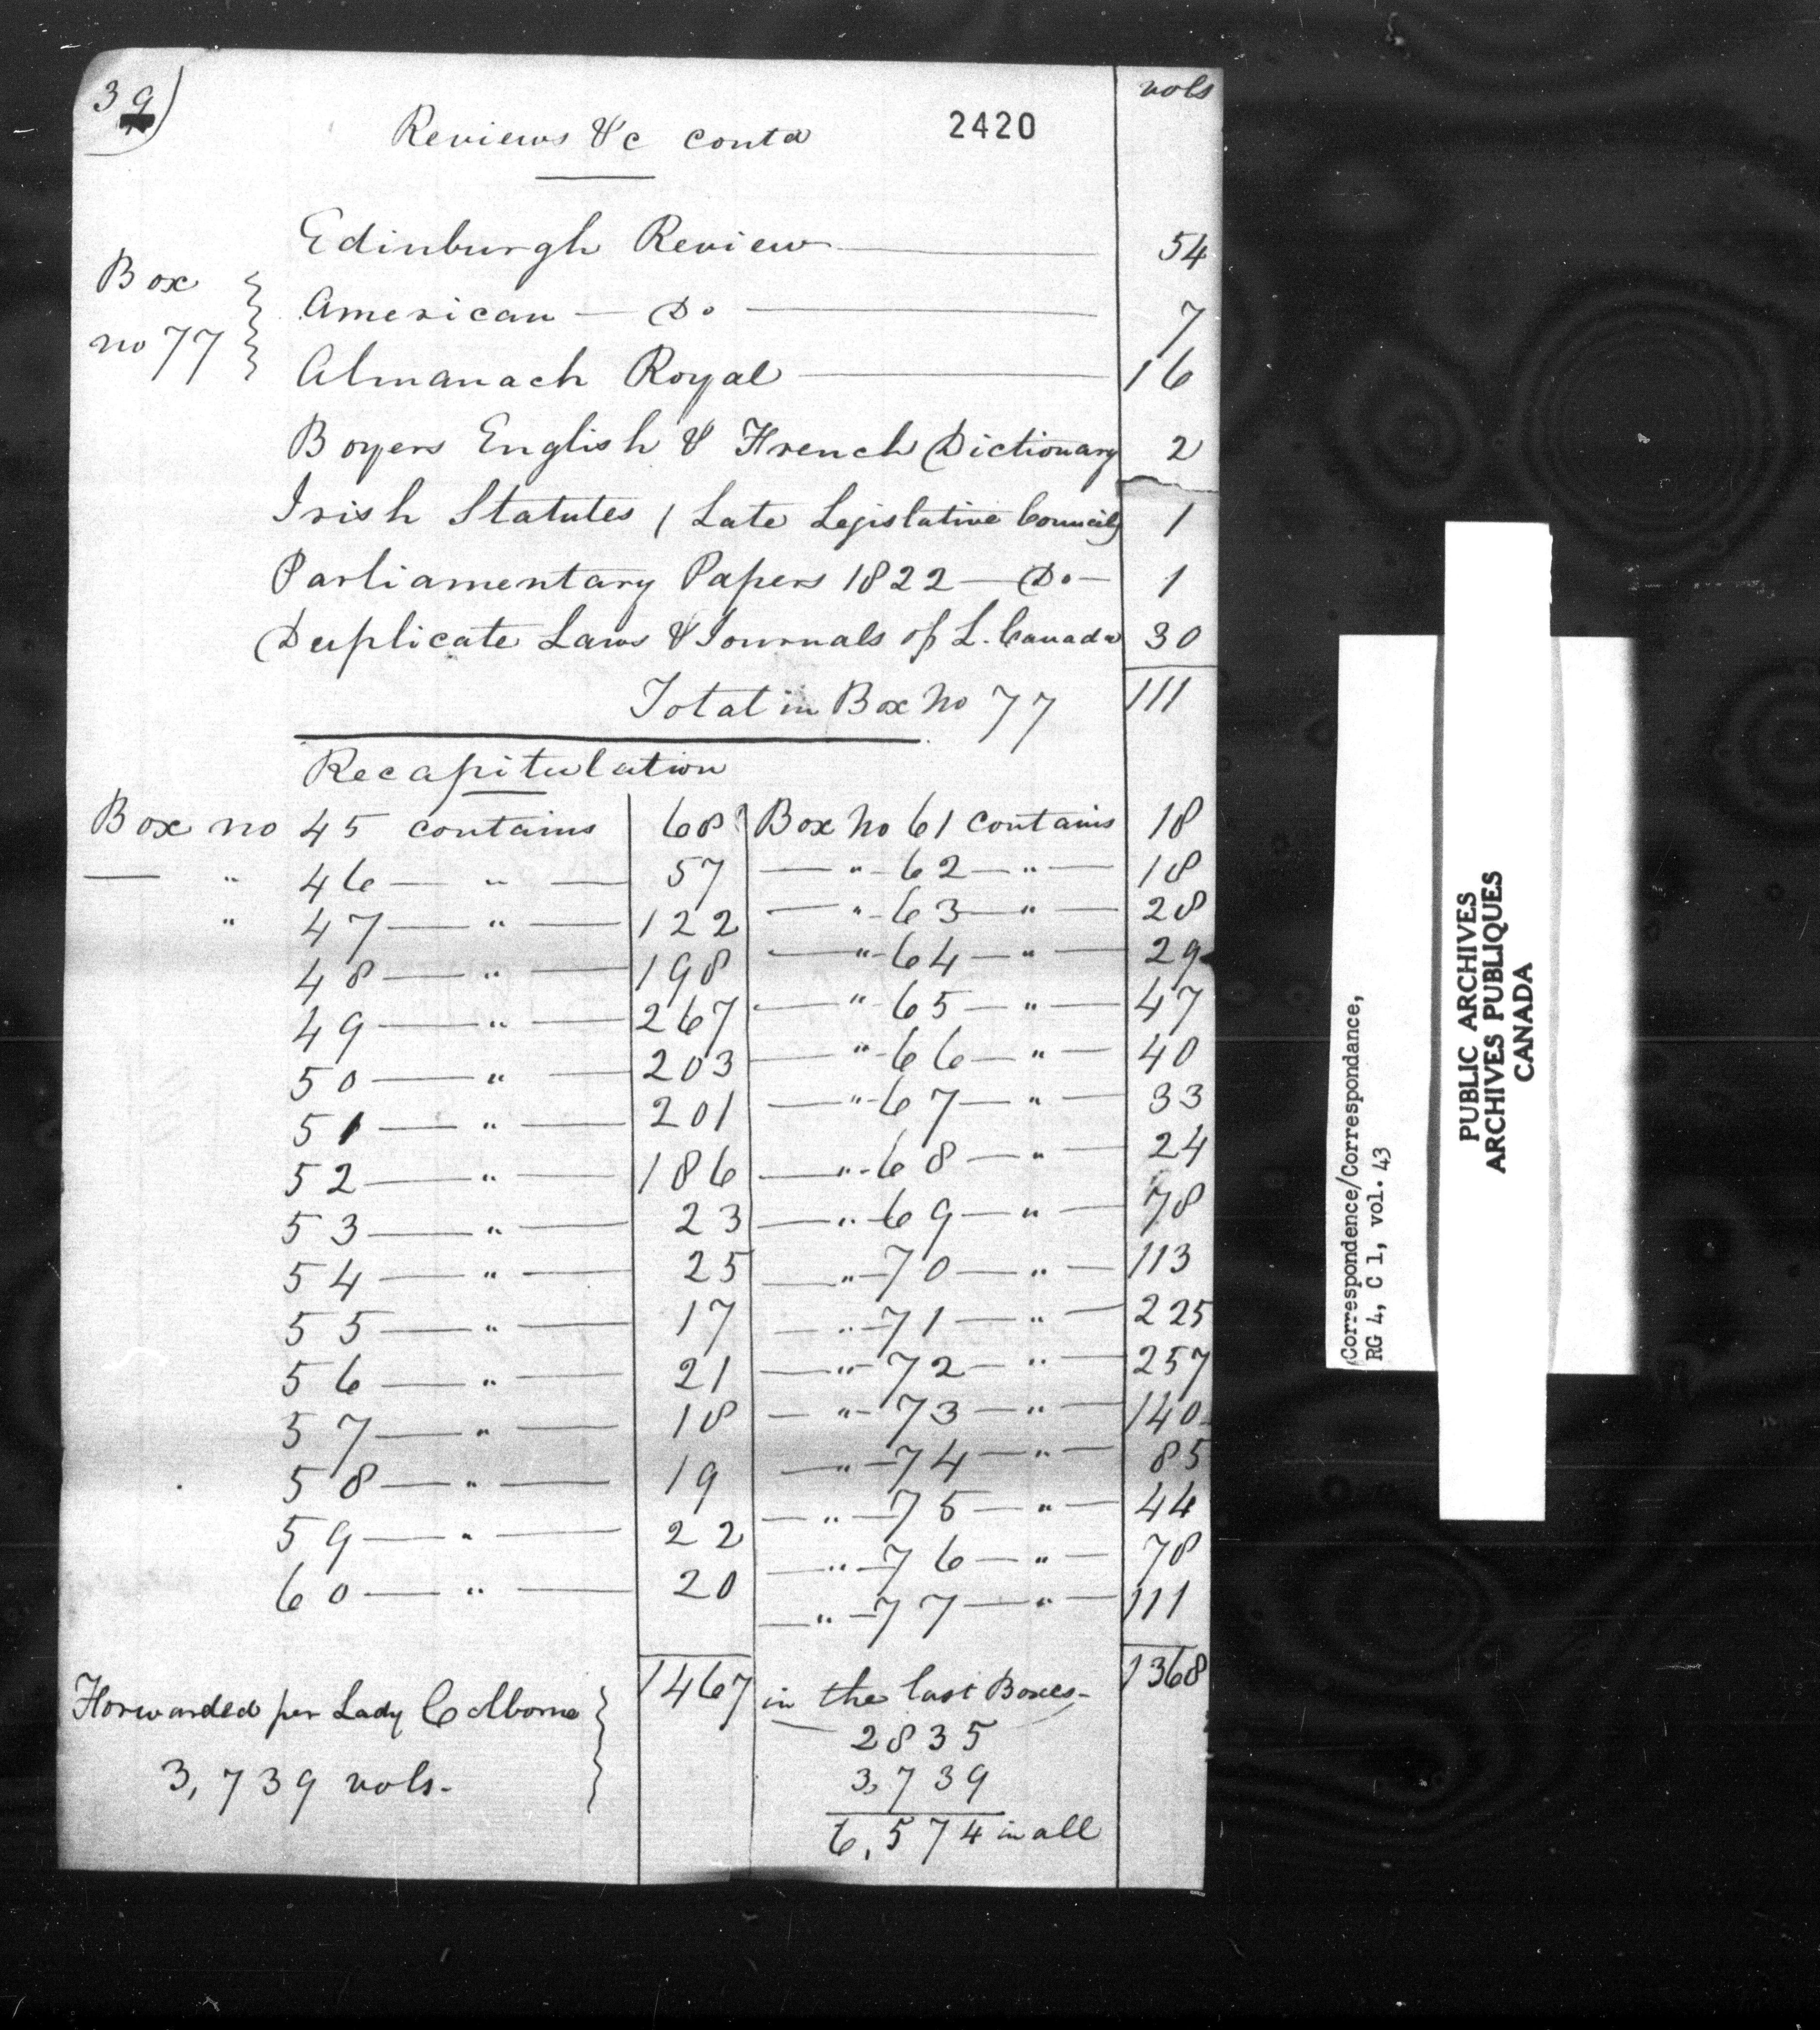 39)
vols
Reviews &c contd
2420
Edinburgh Review 54
Box no 77
American — Do 7
Almanach Royal 16
Boyers English & French Dictionary 2
Irish Statutes (Late Legislative Council) 1
Parliamentary Papers 1822 — Do — 1
Duplicate Laws & Journals of L. Canada 30
Total in Box No 77 111
Recapitulation
Box no 45 contains 68 Box No 61 contains 18
— " 46 — " — 57 — " — 62 — " — 18
" 47 — " — 122 — " — 63 — " — 28
48 — " — 198 — " — 64 — " — 29
49 — " — 267 — " — 65 — " — 47
50 — " — 203 — " — 66 — " — 40
51 — " — 201 — " — 67 — " — 33
52 — " — 186 — " — 68 — " — 24
53 — " — 23 — " — 69 — " — 78
54 — " — 25 — " — 70 — " — 113
55 — " — 17 — " — 71 — " — 225
56 — " — 21 — " — 72 — " — 257
57 — " — 18 — " — 73 — " — 140
58 — " — 19 — " — 74 — " — 85
59 — " — 22 — " — 75 — " — 44
60 — " — 20 — " — 76 — " — 78
— " — 77 — " — 111
1467 in the last Boxes — 1368
Forwarded per Lady Colborne
2835
3,739 vols.
3,739
6,574 in all
Correspondence/Correspondance,
RG 4, C 1, vol. 43
PUBLIC ARCHIVES
ARCHIVES PUBLIQUES
CANADA